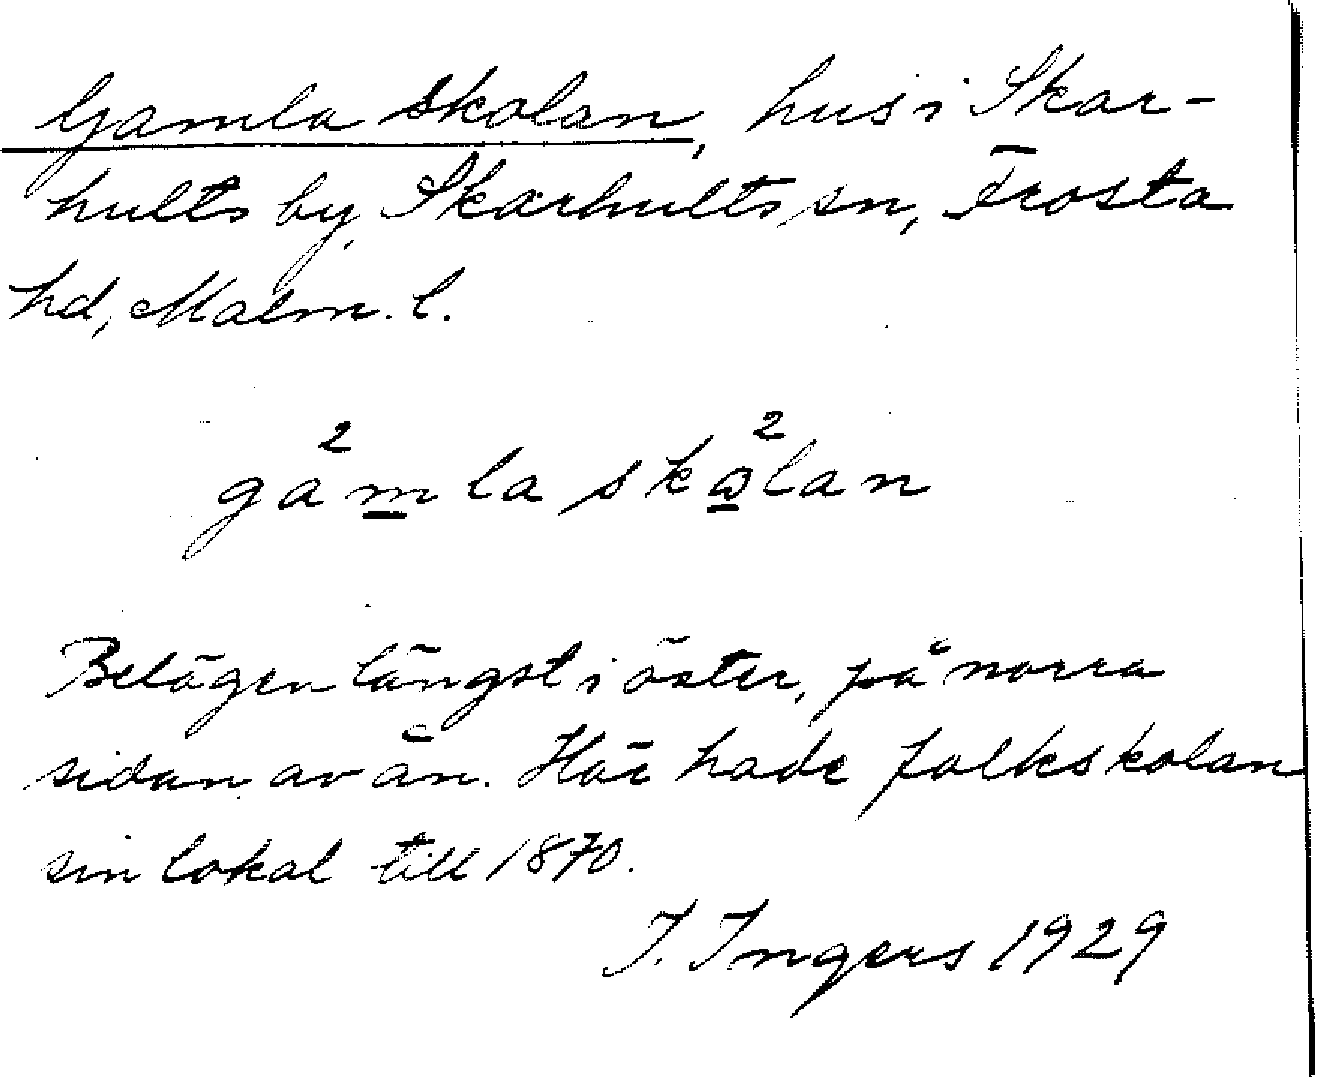 Gamla skolan, hus i Skar-
hults by, Skarhults sn, Frosta
hd, Malm. l.
gå²mla skω²lan
Belägen längst i öster, på norra
sidan av ån. Här hade folkskolan
sin lokal till 1870.
I. Ingers 1929